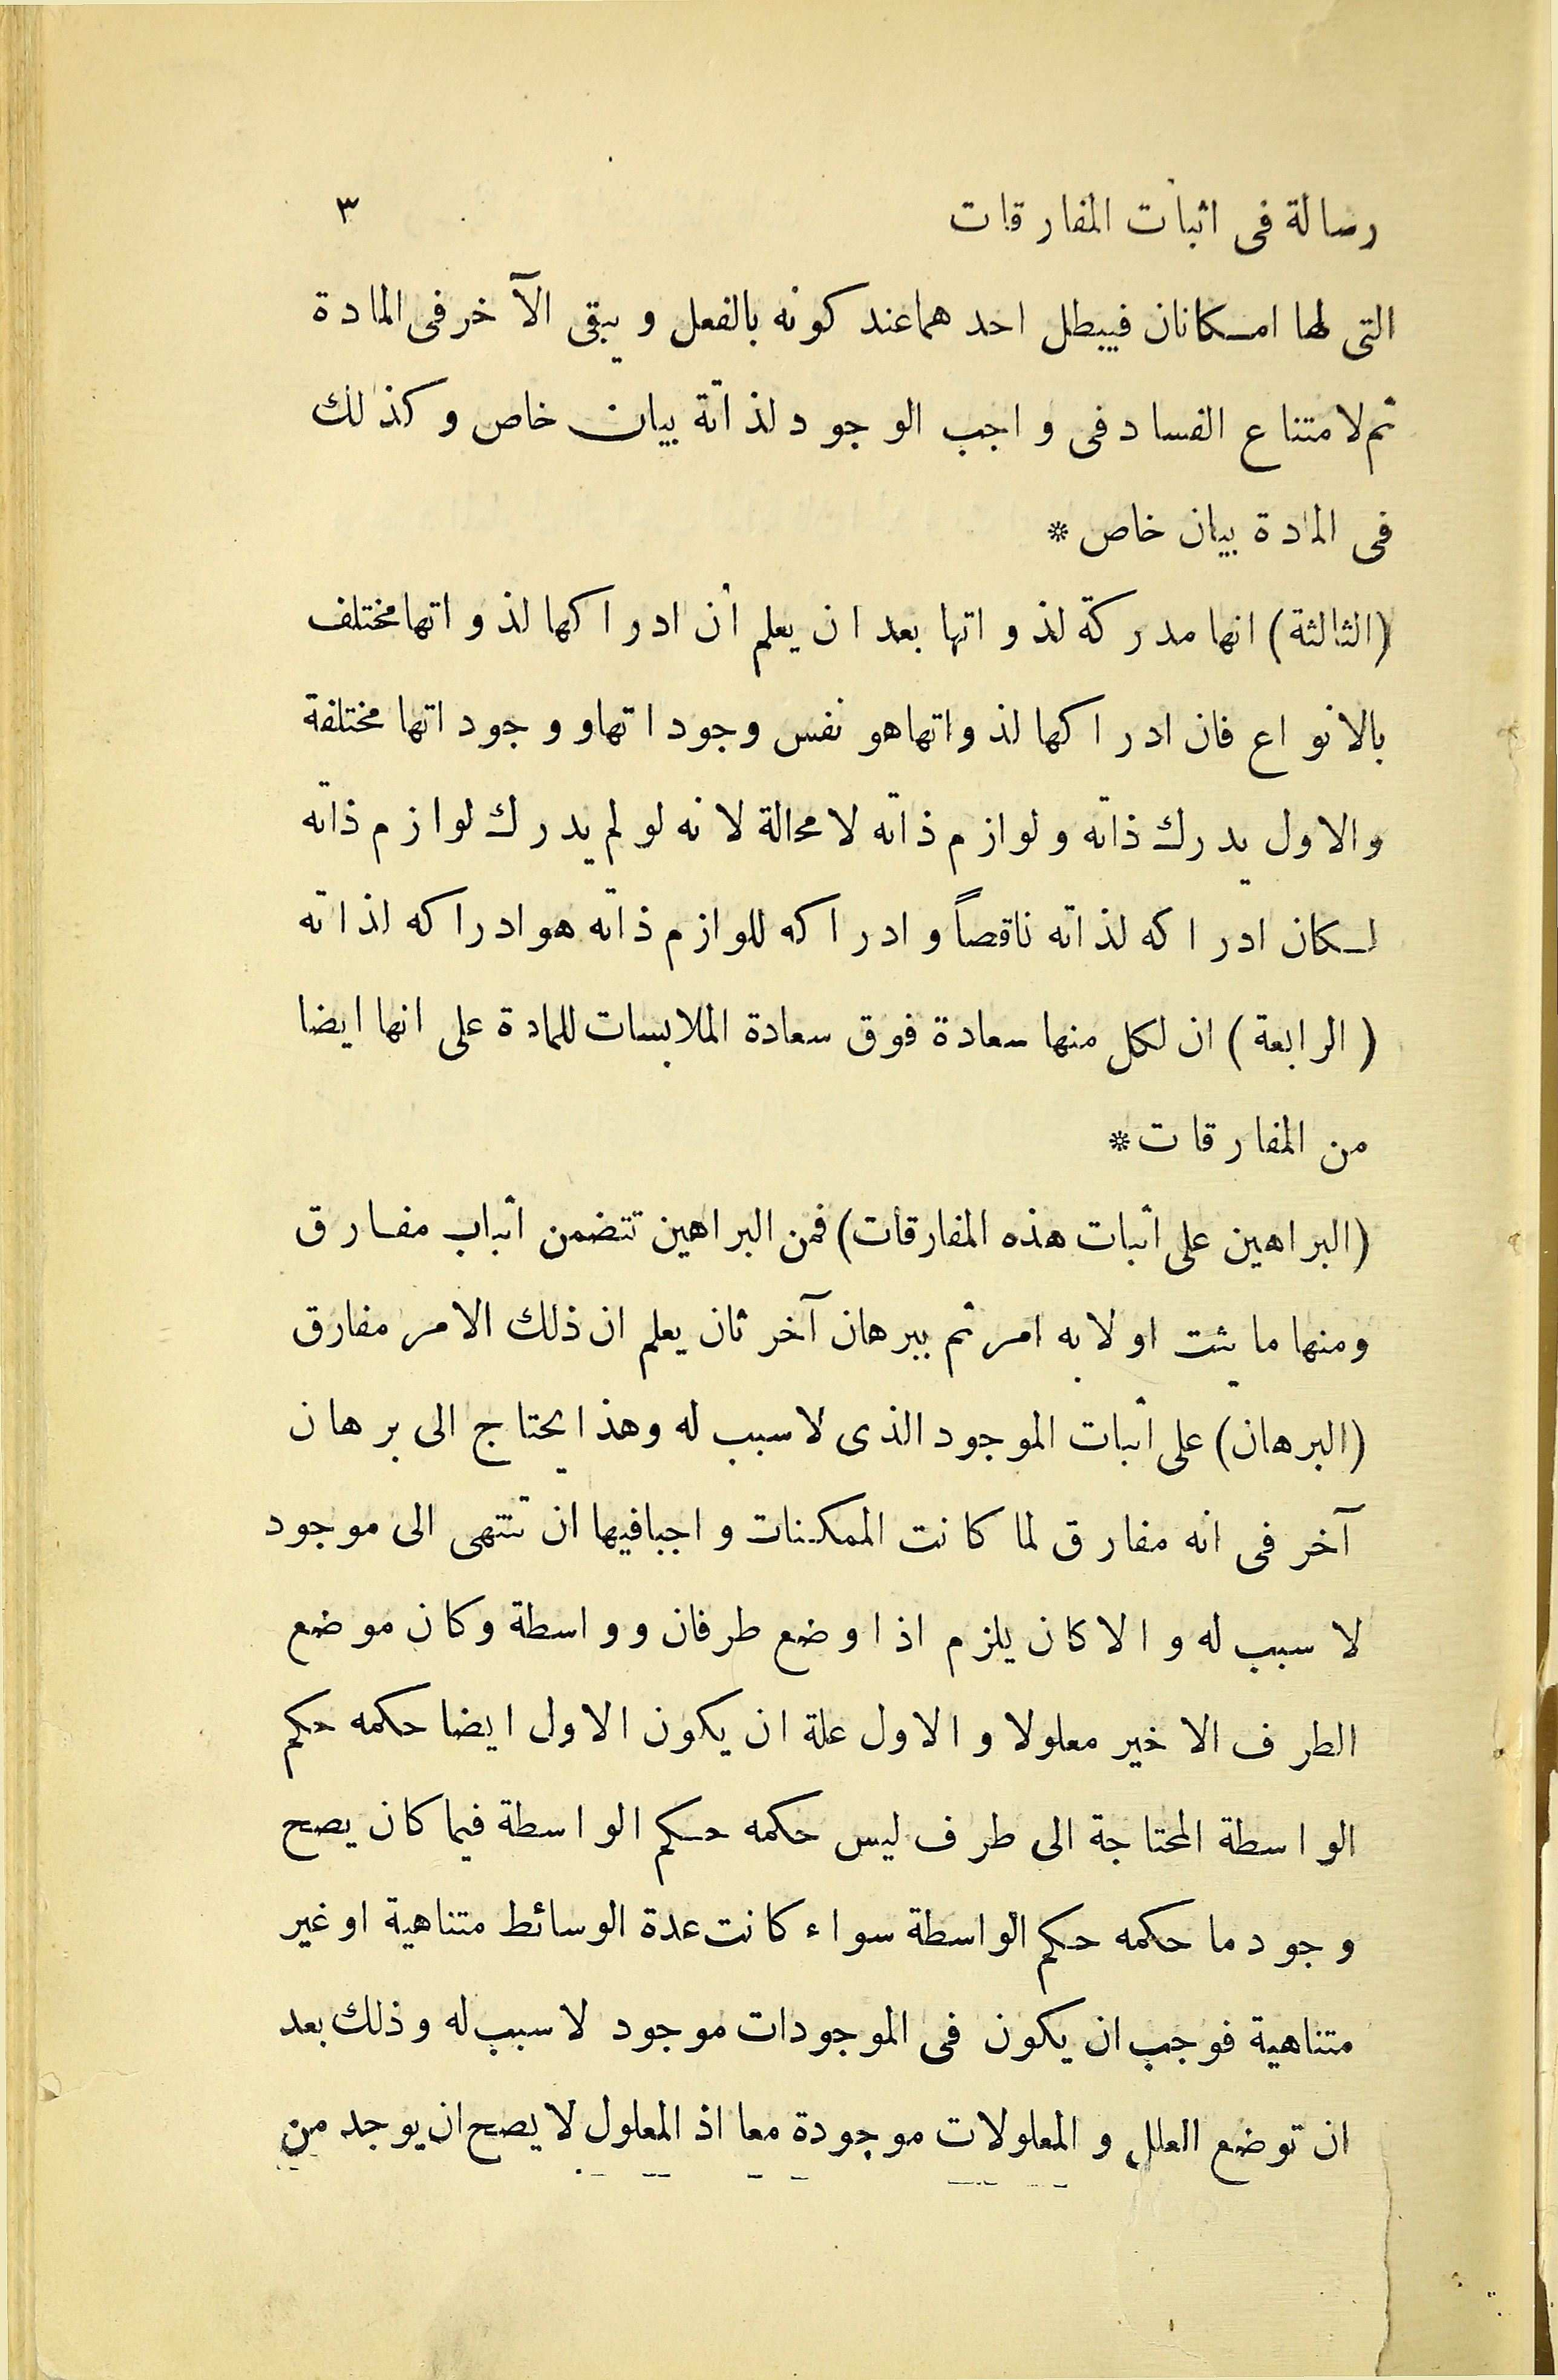 رسالة فى اثبات المفارقات ٣
التى لها امكانان فيبطل احدهما عند كونه بالفعل و يبقى الآخر فى المادة
ثم لامتناع الفساد فى واجب الوجود لذاتة بيان خاص وكذلك
فى المادة بيان خاص *
(الثالثة) انها مدركة لذواتها بعد ان يعلم أن ادراكها لذواتها مختلف
بالانواع فان ادراكها لذواتها هو نفس وجوداتها و وجوداتها مختلفة
والاول يدرك ذاته ولوازم ذاته لا محالة لانه لو لم يدرك لوازم ذاته
لكان ادراكه لذاته ناقصاً وادراكه للوازم ذاته هو ادراكه لذاته
(الرابعة) ان لكل منها سعادة فوق سعادة الملابسات للمادة على انها ايضا
من المفارقات *
(البراهين على أثبات هذه المفارقات) فمن البراهين تتضمن أثباب مفارق
ومنها ما يثبت اولا به امر ثم ببرهان آخر ثان يعلم ان ذلك الامر مفارق
(البرهان) على أثبات الموجود الذى لا سبب له وهذا يحتاج الى برهان
آخر فى انه مفارق لما كانت الممكنات واجبا فيها ان تنتهى الى موجود
لا سبب له والا كان يلزم اذا وضع طرفان وواسطة وكان موضع
الطرف الاخير معلولا والاول علة ان يكون الاول ايضا حكمه حكم
الواسطة المحتاجة الى طرف ليس حكمه حكم الواسطة فيما كان يصح
وجود ما حكمه حكم الواسطة سواء كانت عدة الوسائط متناهية او غير
متناهية فوجب ان يكون فى الموجودات موجود لا سبب له وذلك بعد
ان توضع العلل و المعلولات موجودة معا اذ المعلول لا يصح ان يوجد من